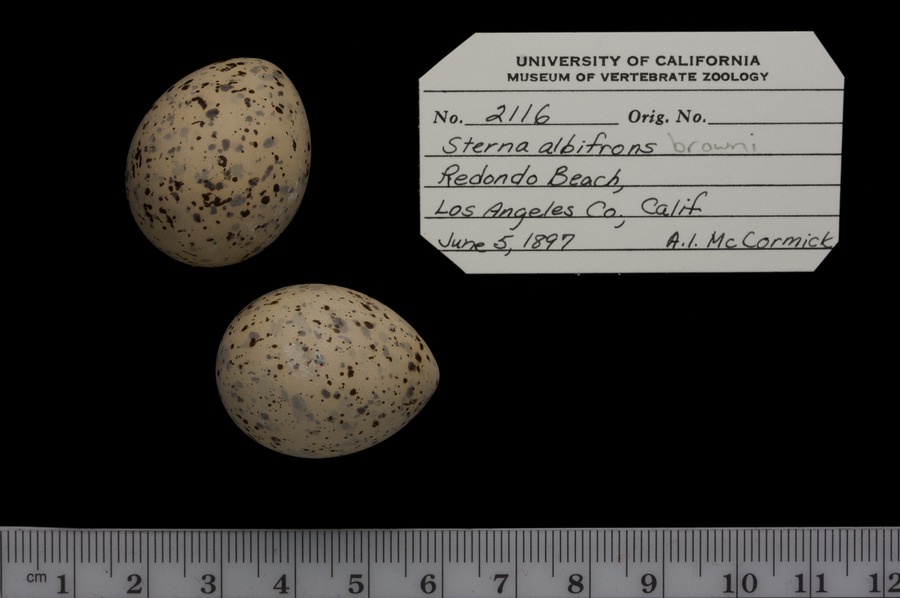 UNIVERSITY OF CALIFORNIA
MUSEUM OF VERTEBRATE ZOOLOGY
No. 2116 Orig. No.
Sterna albifrons browni
Redondo Beach,
Los Angeles Co., Calif.
June 5, 1897 A.I. McCormick
cm 1 2 3 4 5 6 7 8 9 10 11 12